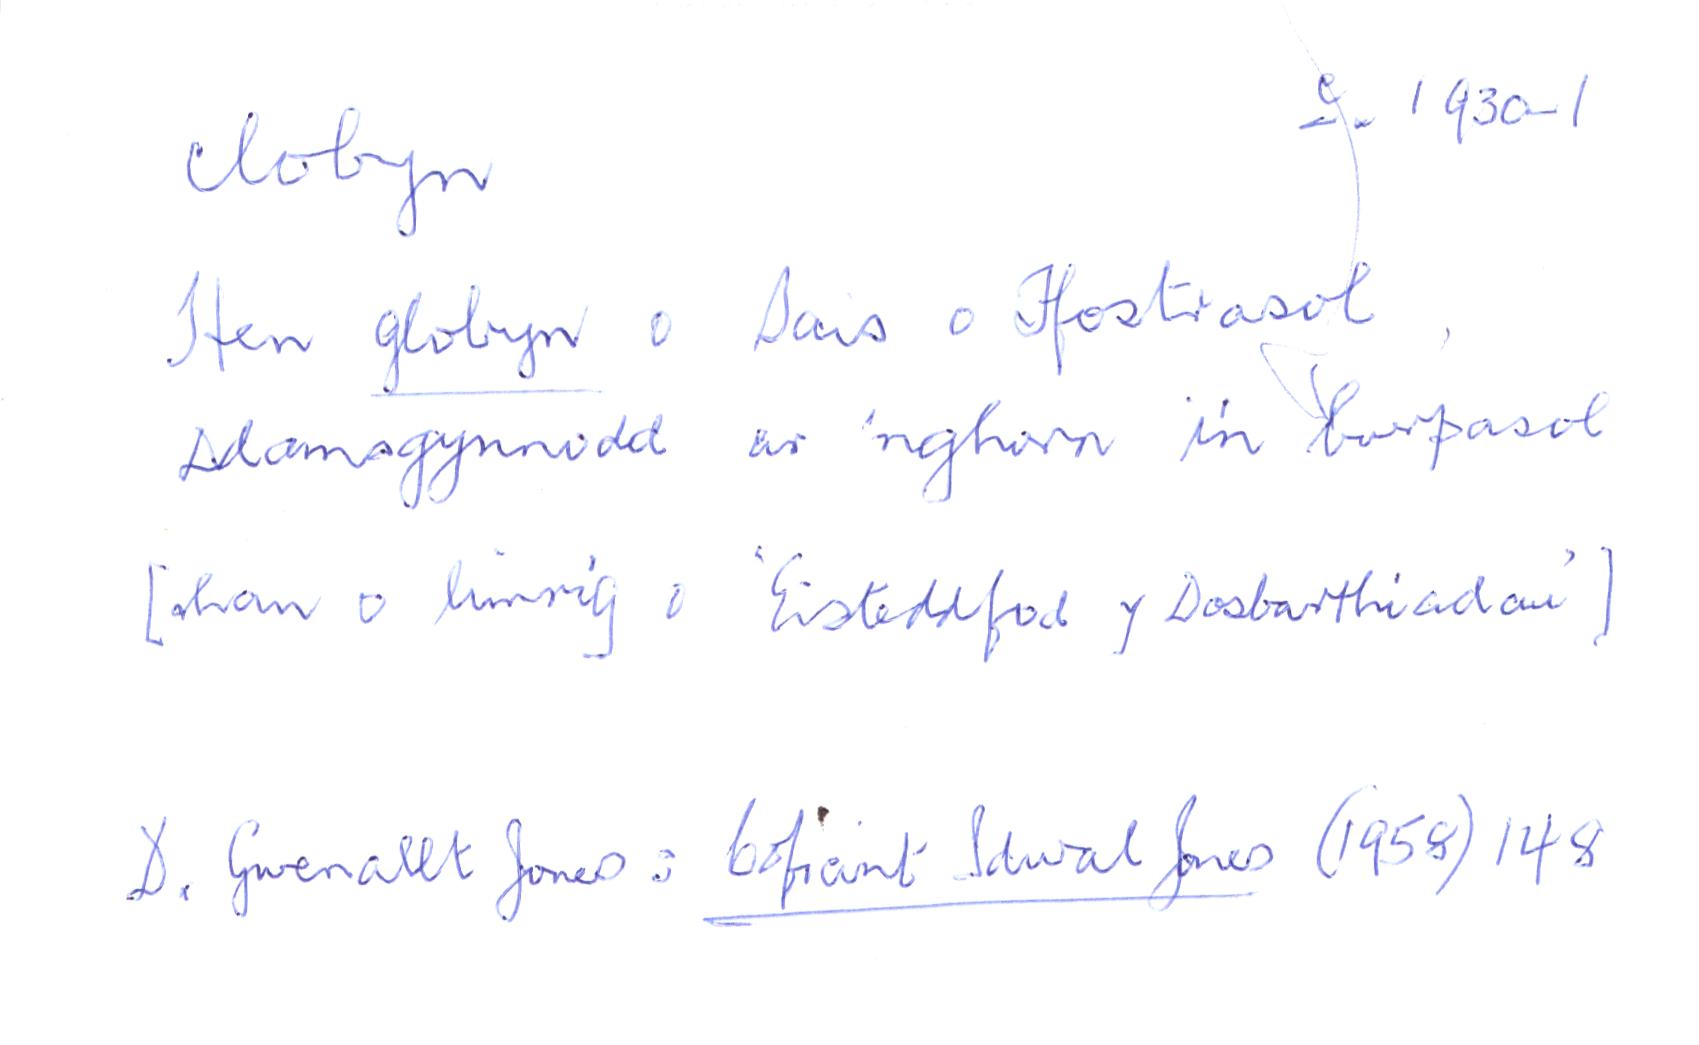 clobyn
c. 1930-1
Hen globyn o Sais o Ffostrasol,
Ddamsgynnodd ar 'nghorn i'n bwrpasol
[rhan o limrig o 'Eisteddfod y Dosbarthiadau']
D. Gwenallt Jones: Cofiant Idwal Jones (1958) 148